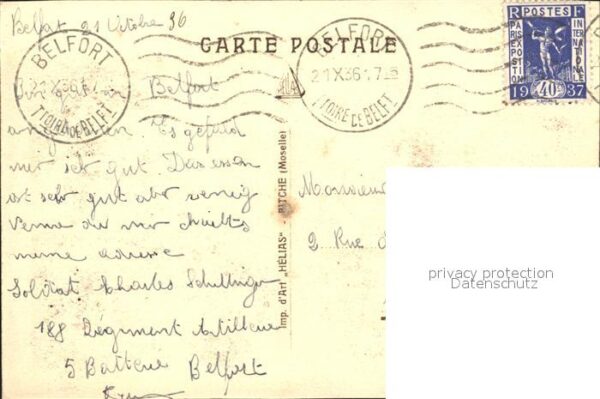 Belfort 21 Octobre 36
CARTE POSTALE
BELFORT
TTOIRE DE BELFT
BELFORT
21 X 36 17
TTOIRE DE BELFT
R POSTES F
PARIS EXPOSITION
INTERNATIONALE
40c
1937
in Belfort
Es gefald
mir sehr gut Das essen
est sehr gut abr wenig
Wenn du mir
meine adresse
Soldat Charles
188 Régiment Artillerie
5 Batterie Belfort
Imp. d'Art "HÉLIAS" - BITCHE (Moselle)
Monsieur
2 Rue d
privacy protection
Datenschutz